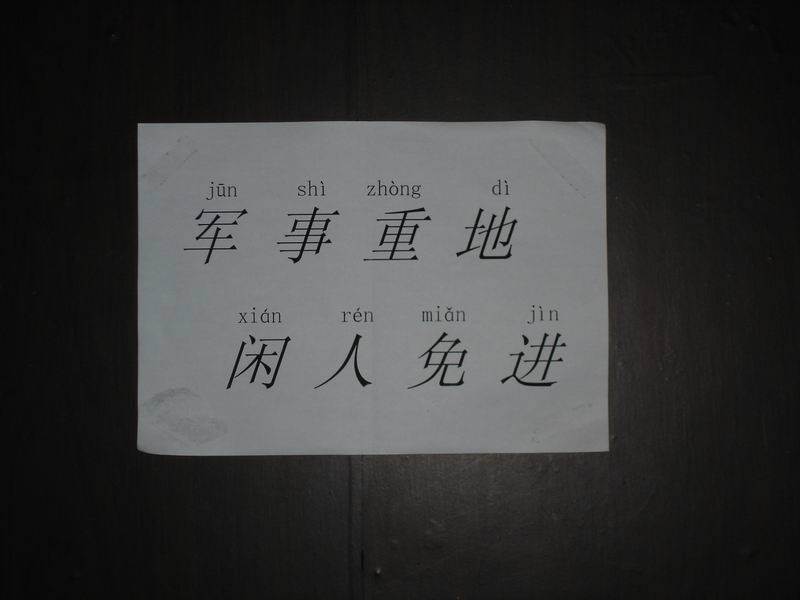 jūn shì zhòng dì
军事重地
xián rén miǎn jìn
闲人免进